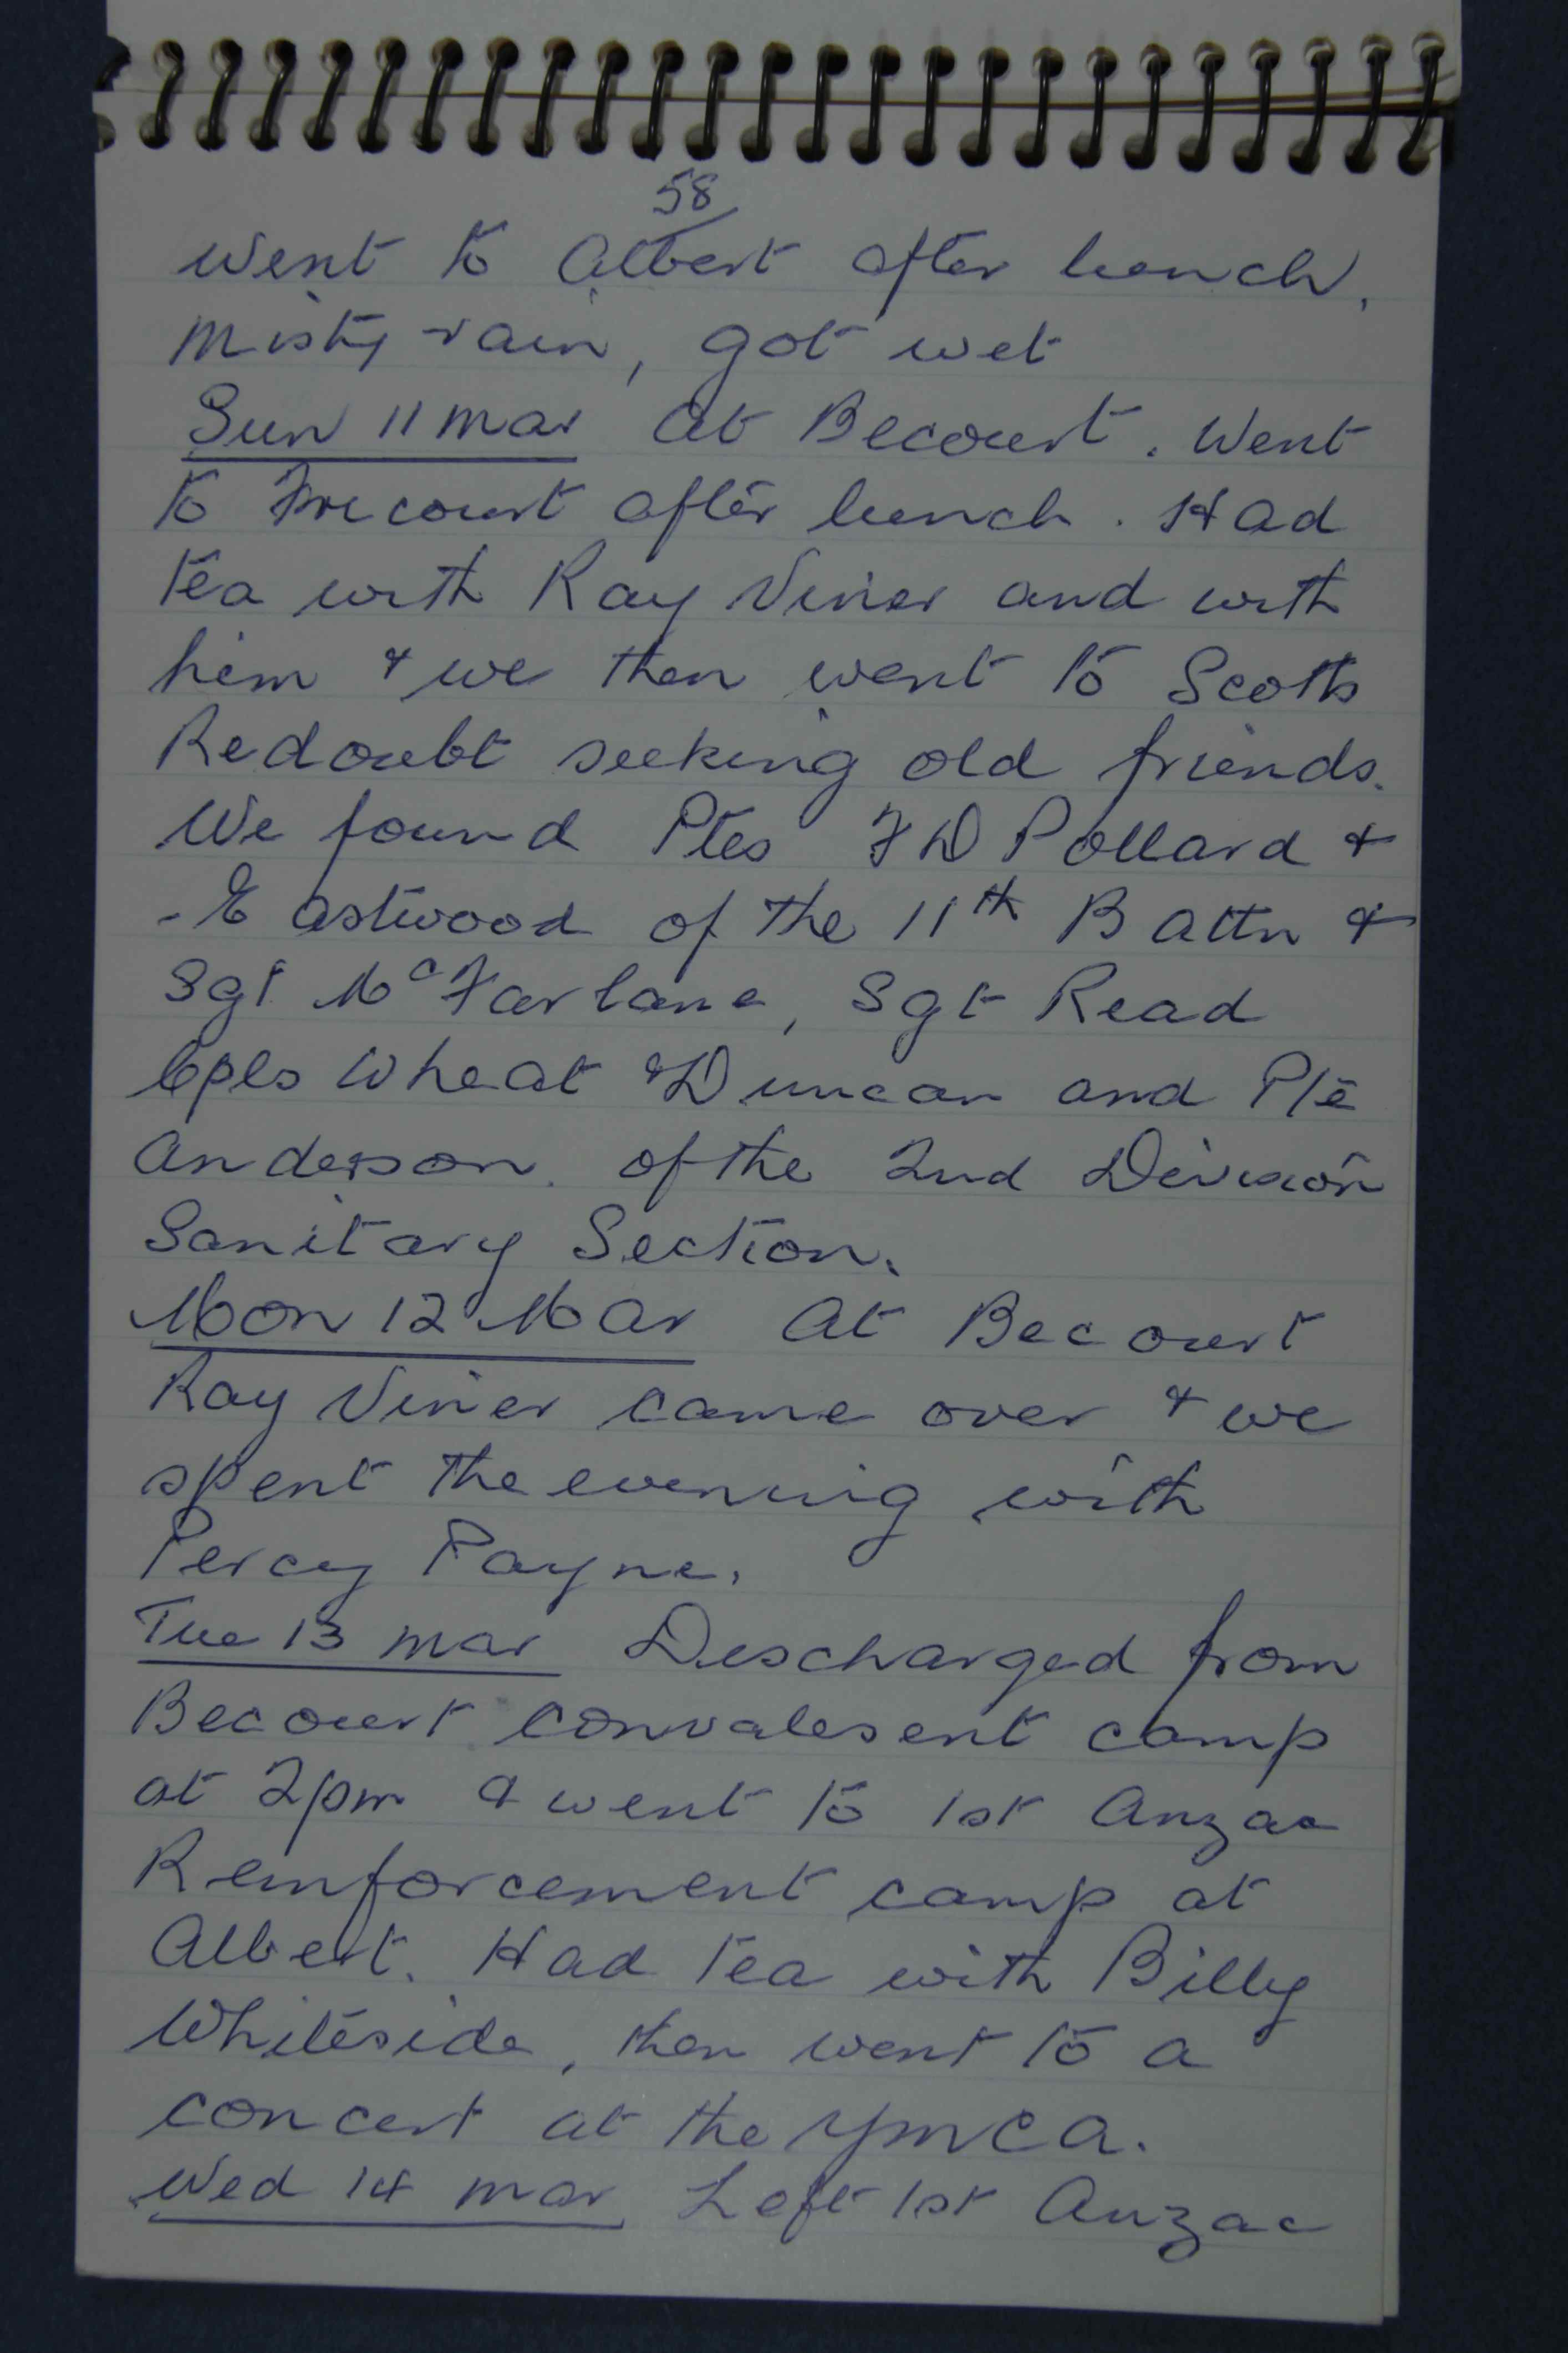 58
Went to Albert after lunch.
Misty rain, got wet
Sun 11 Mar at Becourt. Went
to Fricourt after lunch. Had
tea with Ray Viner and with
him & we then went to Scotts
Redoubt seeking old friends.
We found Ptes F D Pollard &
- Eastwood of the 11th Battn &
Sgt McFarlane, Sgt Read
Cpls Wheat & Duncan and Pte
Anderson. of the 2nd Division
Sanitary Section.
Mon 12 Mar at Becourt
Ray Viner came over & we
spent the evening with
Percy Payne.
Tue 13 Mar Discharged from
Becourt convalesent camp
at 2pm & went to 1st Anzac
Reinforcement camp at
Albert. Had tea with Billy
Whiteside, then went to a
concert at the YMCA.
Wed 14 Mar Left 1st Anzac